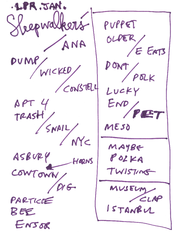 LPR. JAN.
Sleepwalkers
/ ANA
DUMP /
WICKED
/ CONSTELL
APT 4
TRASH /
SNAIL /
NYC
ASBURY
HORNS
COWTOWN /
DIG
PARTICLE
BEE
ENSOR
PUPPET
OLDER /
E EATS
DONT /
PORK
LUCKY
END / PET
MESO
MAYBE
POLKA
TWISTING
MUSEUM /
CLAP
ISTANBUL